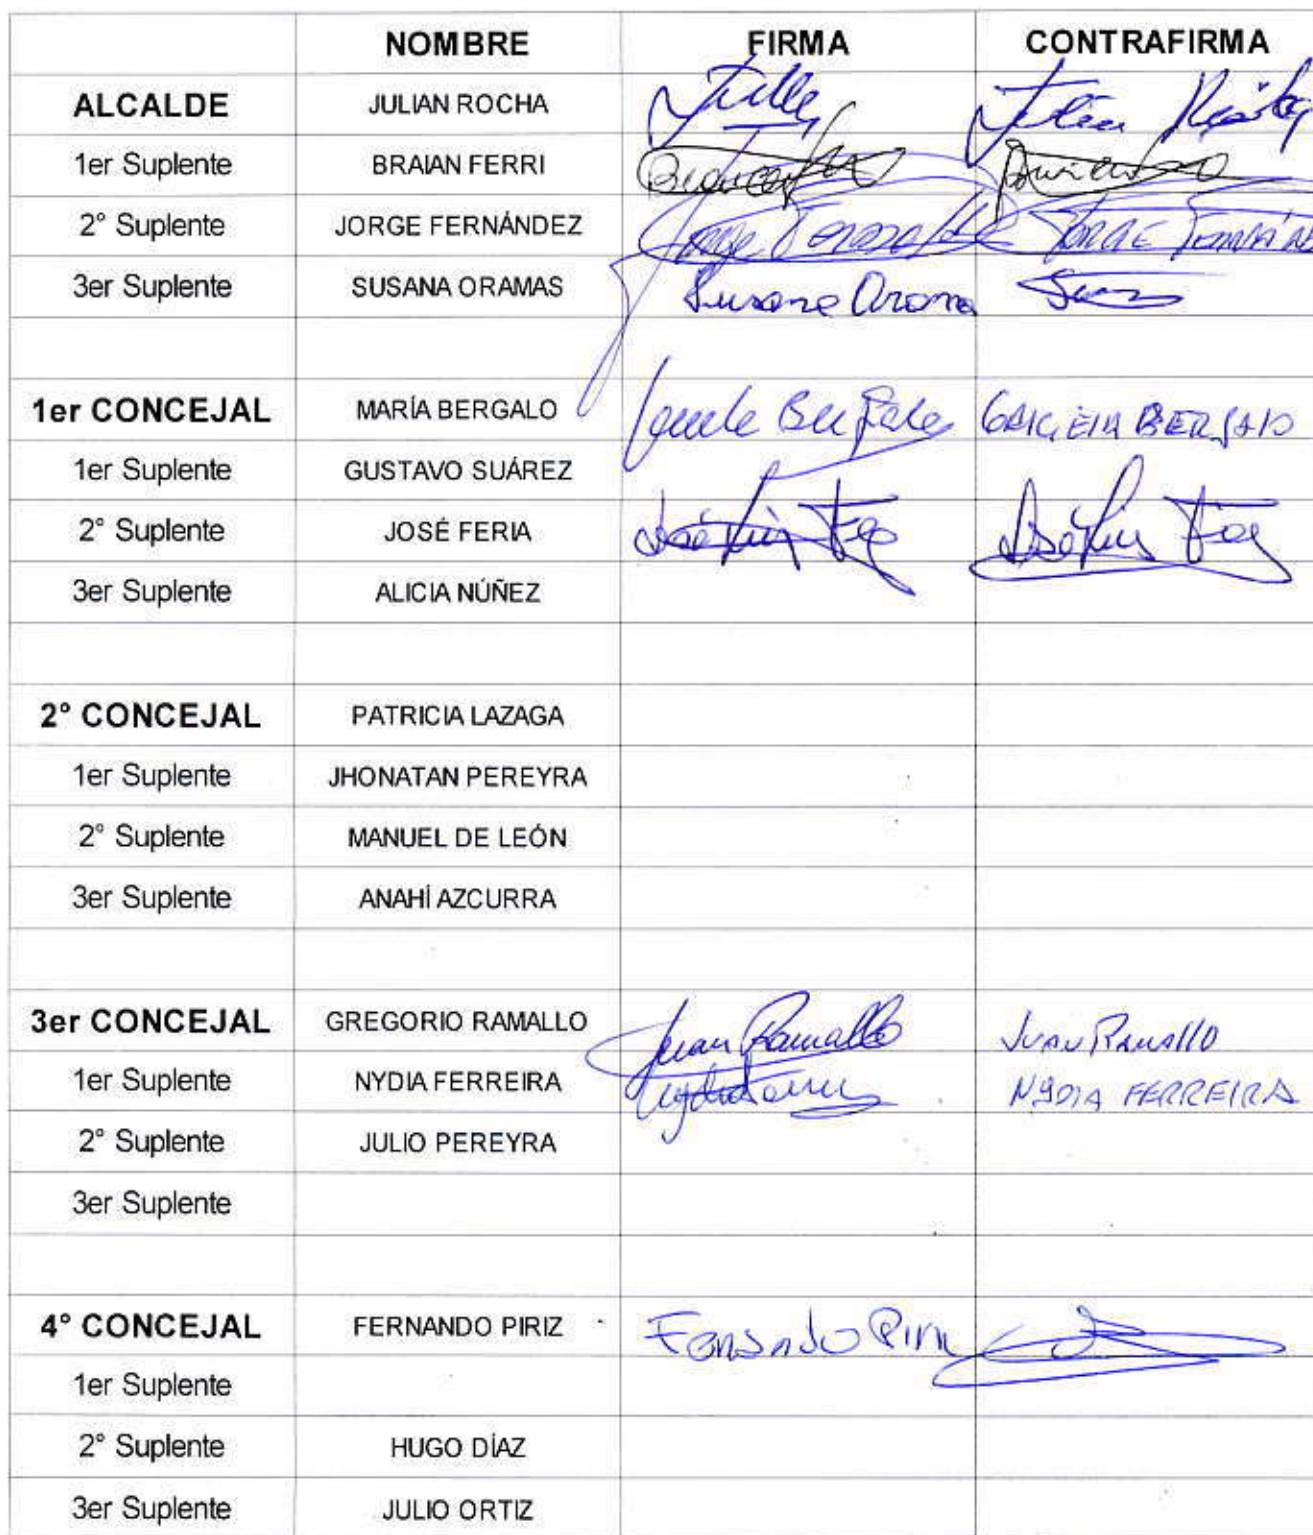 NOMBRE FIRMA CONTRAFIRMA
ALCALDE JULIAN ROCHA
1er Suplente BRAIAN FERRI
2° Suplente JORGE FERNÁNDEZ JORGE
3er Suplente SUSANA ORAMAS Susana
1er CONCEJAL MARÍA BERGALO
1er Suplente GUSTAVO SUÁREZ
2° Suplente JOSÉ FERIA
3er Suplente ALICIA NÚÑEZ
2° CONCEJAL PATRICIA LAZAGA
1er Suplente JHONATAN PEREYRA
2° Suplente MANUEL DE LEÓN
3er Suplente ANAHÍ AZCURRA
3er CONCEJAL GREGORIO RAMALLO Juan Ramallo JUAN RAMALLO
1er Suplente NYDIA FERREIRA NYDIA FERREIRA
2° Suplente JULIO PEREYRA
3er Suplente
4° CONCEJAL FERNANDO PIRIZ
1er Suplente
2° Suplente HUGO DÍAZ
3er Suplente JULIO ORTIZ